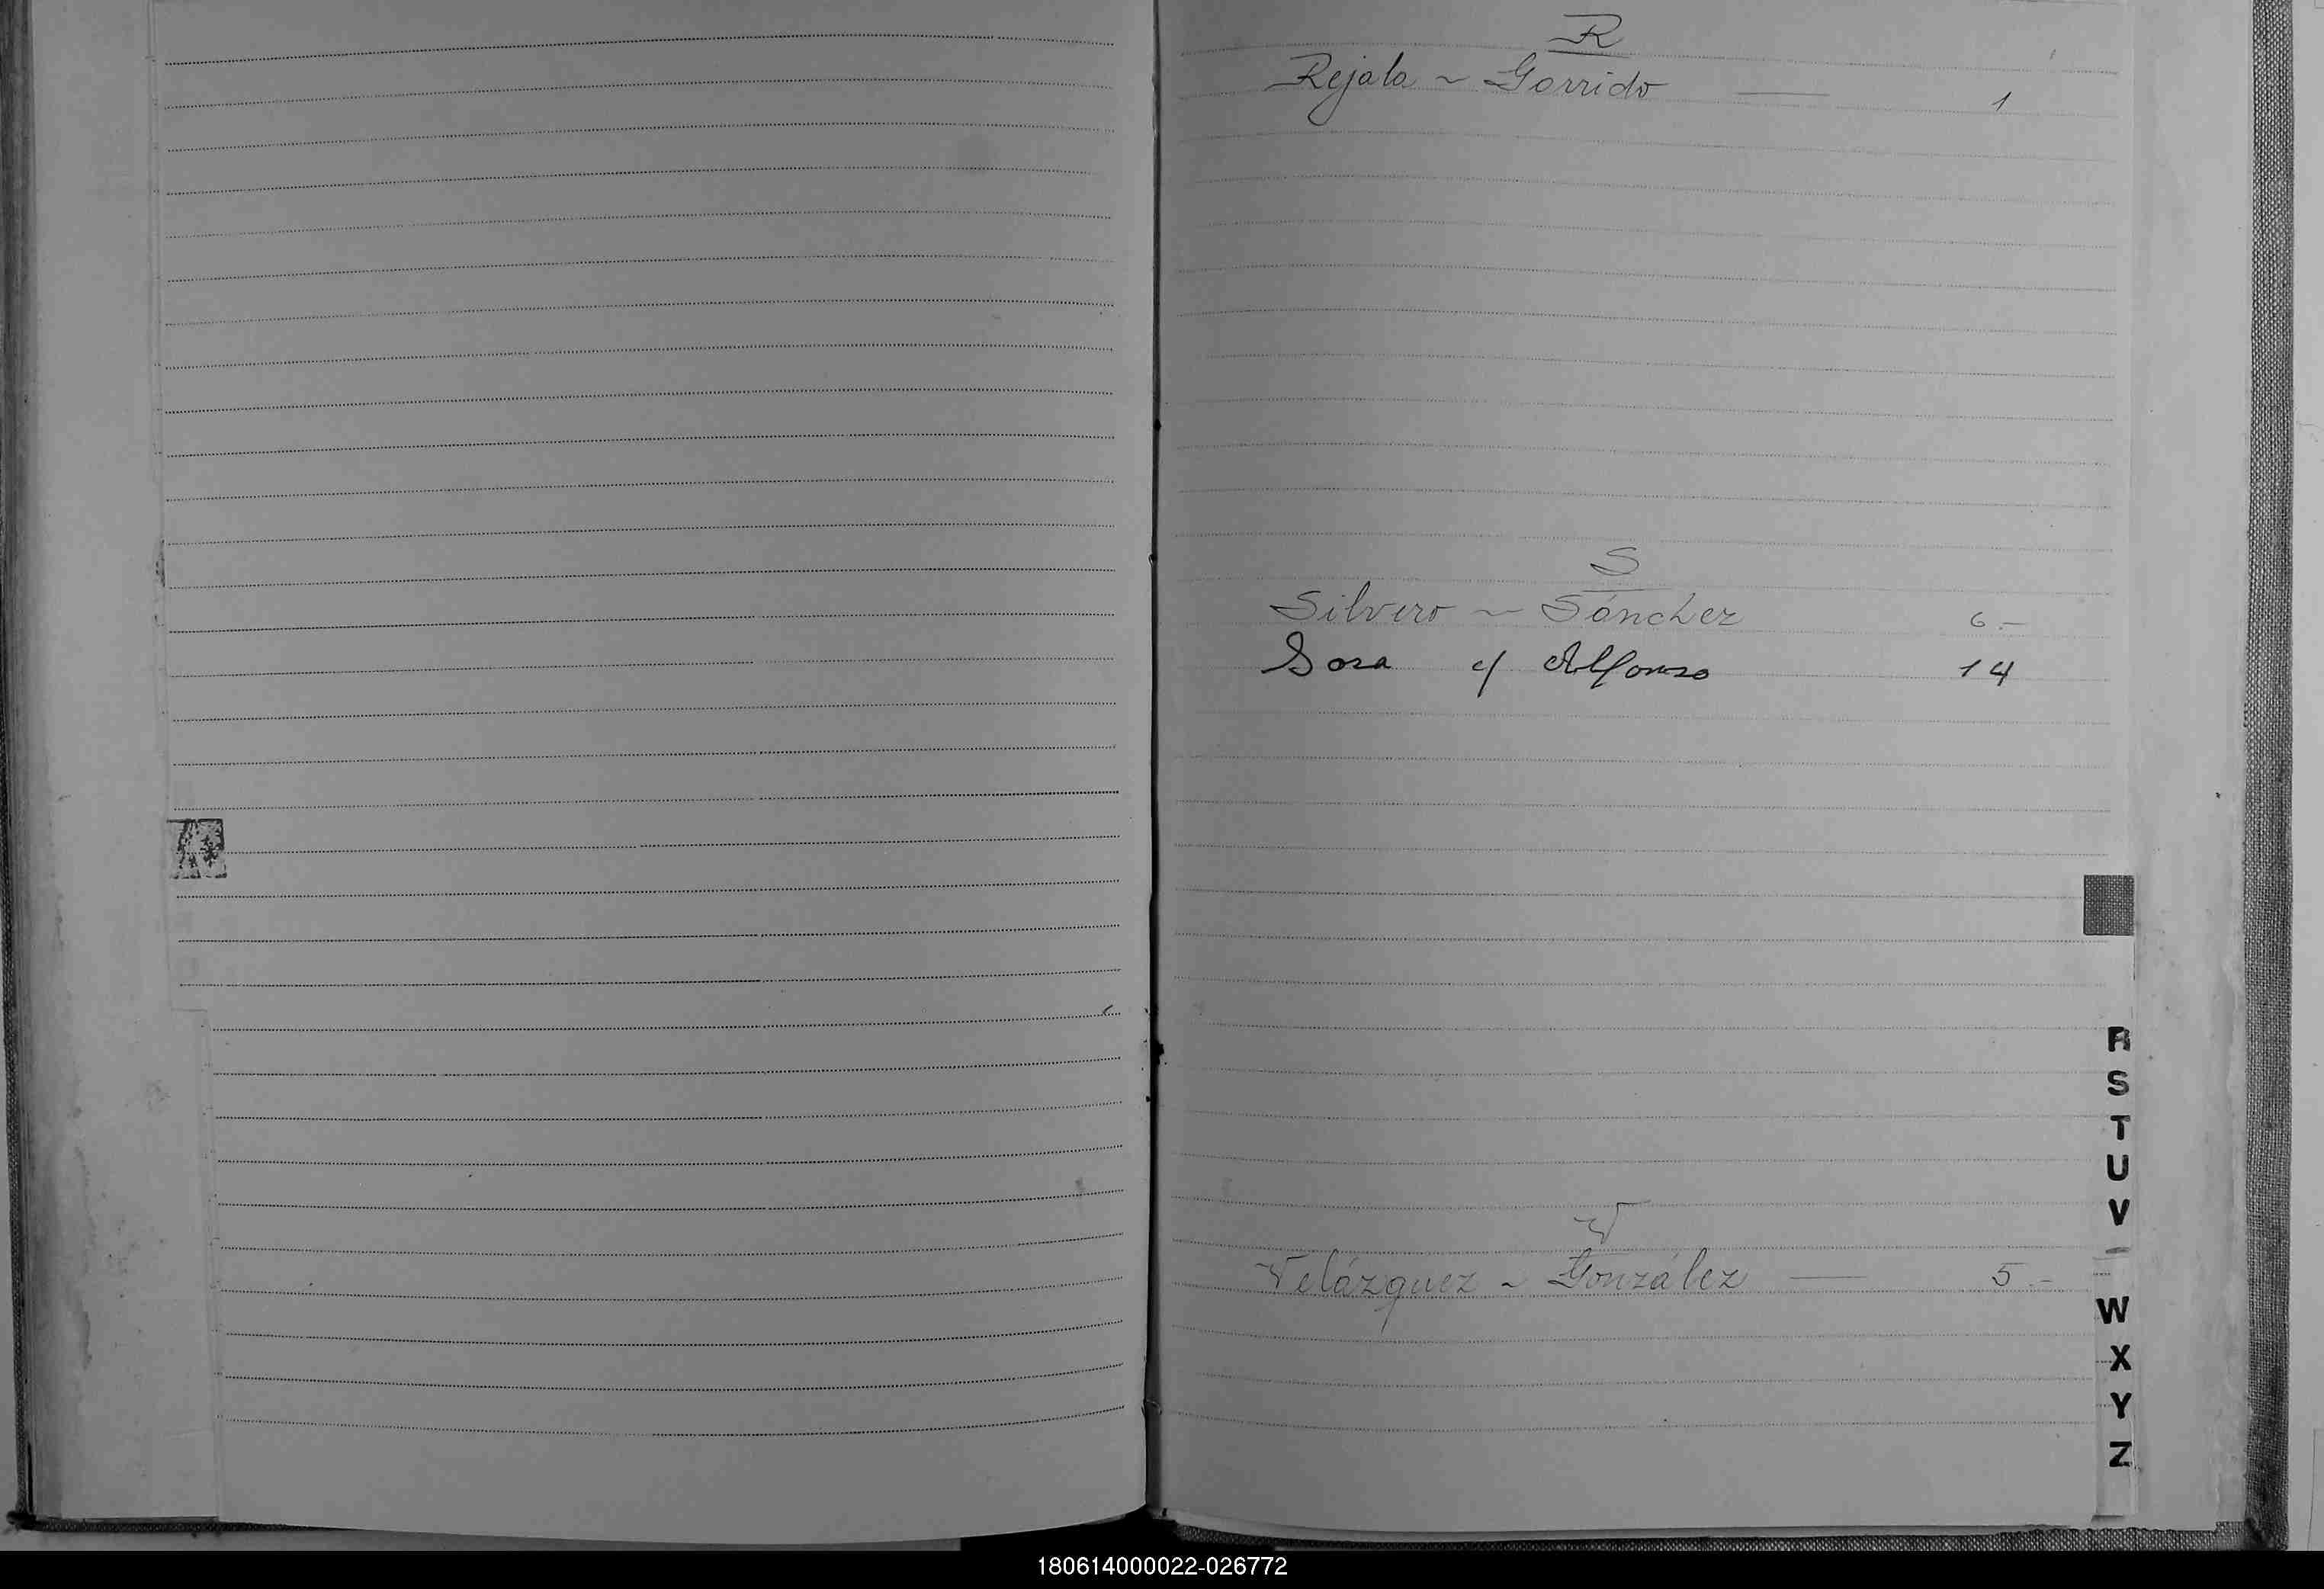 R
Rejala ~ Garrido — 1
S
Silvero ~ Sánchez 6.-
Sosa c/ Alfonso 14
V
Velázquez ~ González — 5.-
R
S
T
U
V
W
X
Y
Z
180614000022-026772